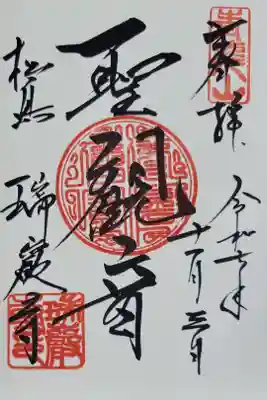 奉拝
令和七年
十一月三日
聖観世音
松島
瑞巌寺